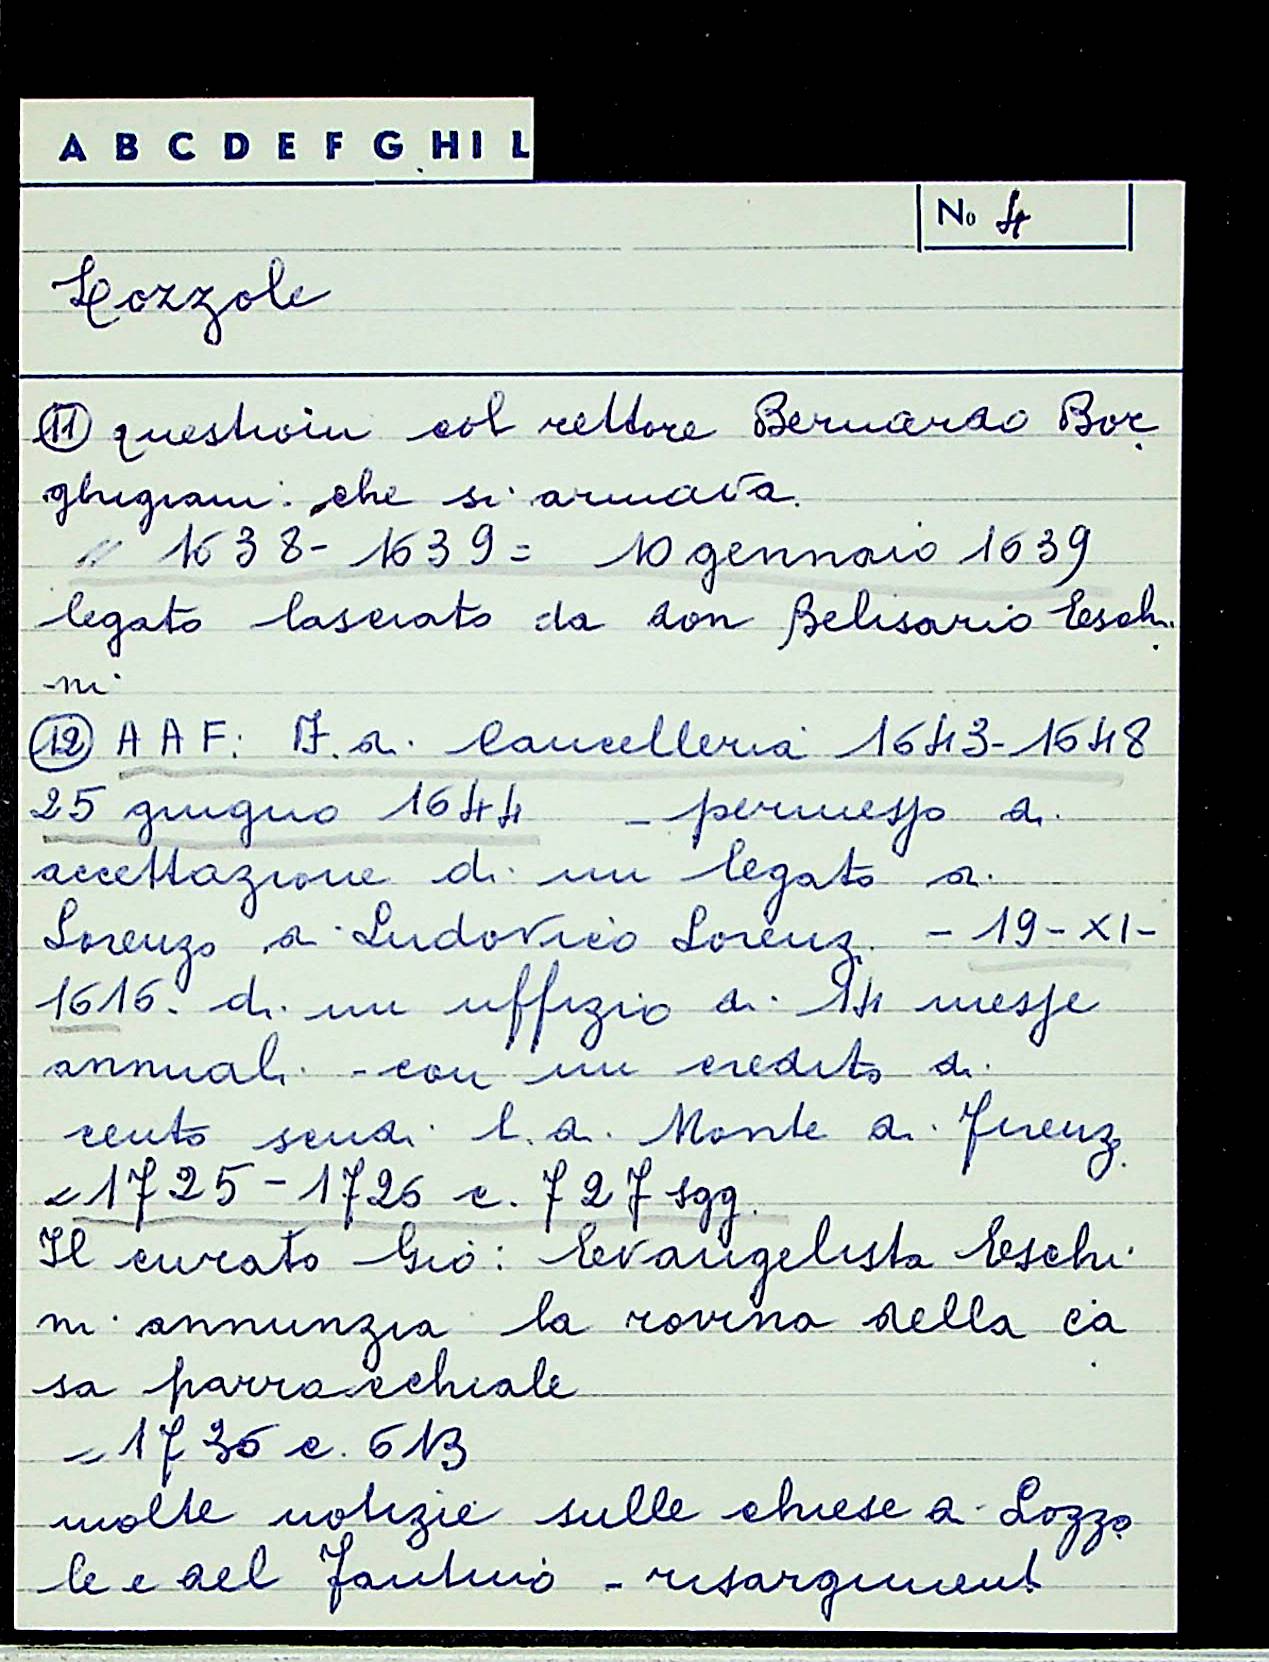 A B C D E F G H I L
No 4
Lozzole
11 questioni col rettore Bernardo Bor
ghigiani: che si armava.
" 1638-1639 = 10 gennaio 1639
legato lasciato da don Belisario Eschi
ni
12 A A F: F. di Cancelleria 1643-1648
25 giugno 1644 - permesso di
accettazione di un legato di
Lorenzo di Ludovico Lorenz. - 19-XI-
1616. di un uffizio di 14 messe
annuali - con un credito di
cento scudi l. d. Monte di Firenz.
" 1725-1726 c. 727 sgg.
Il curato Gio: Evangelista Eschi
ni annunzia la rovina della ca
sa parrocchiale
" 1736 c. 613
molte notizie sulle chiese di Lozzo
le e del Fantino - risargimenti